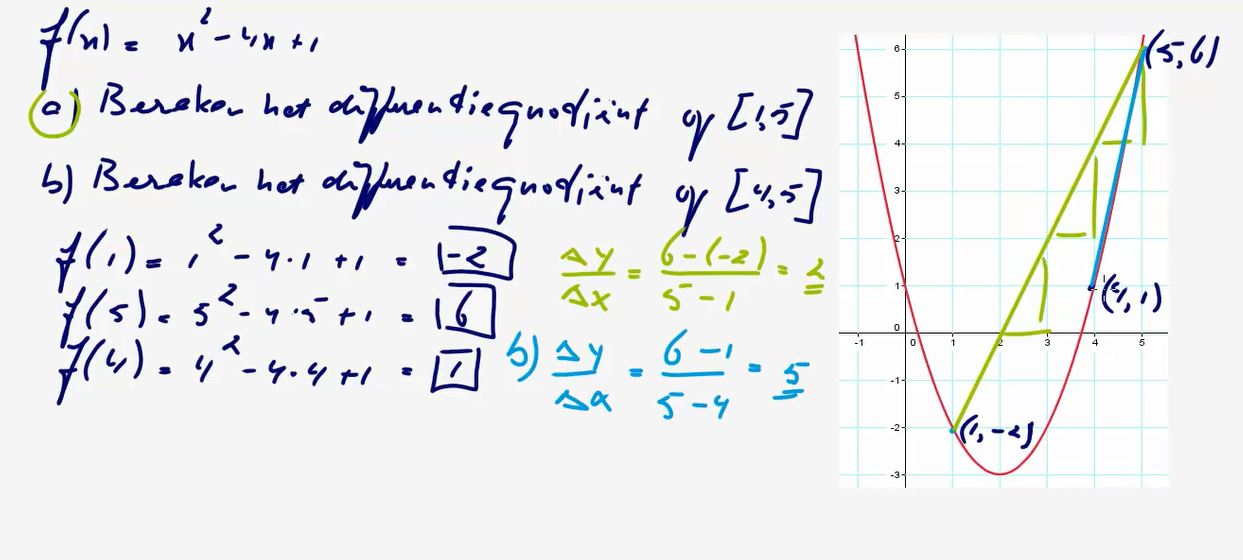 f(x) = x² - 4x + 1
a) Bereken het differentiequotiënt op [1,5]
b) Bereken het differentiequotiënt op [4,5]
f(1) = 1² - 4·1 + 1 = -2
f(5) = 5² - 4·5 + 1 = 6
f(4) = 4² - 4·4 + 1 = 1
Δy/Δx = 6-(-2)/5-1 = 2
b) Δy/Δx = 6-1/5-4 = 5
(5,6)
(4,1)
(1,-2)
6
5
4
3
2
1
0
-1
-2
-3
-1 0 1 2 3 4 5